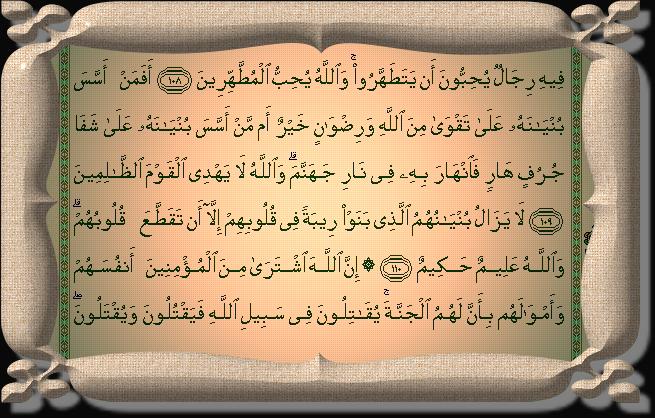 فِيهِ رِجَالٌ يُحِبُّونَ أَن يَتَطَهَّرُوا۟ ۚ وَٱللَّهُ يُحِبُّ ٱلْمُطَّهِّرِينَ ١٠٨ أَفَمَنْ أَسَّسَ
بُنْيَـٰنَهُۥ عَلَىٰ تَقْوَىٰ مِنَ ٱللَّهِ وَرِضْوَٰنٍ خَيْرٌ أَم مَّنْ أَسَّسَ بُنْيَـٰنَهُۥ عَلَىٰ شَفَا
جُرُفٍ هَارٍ فَٱنْهَارَ بِهِۦ فِى نَارِ جَهَنَّمَ ۗ وَٱللَّهُ لَا يَهْدِى ٱلْقَوْمَ ٱلظَّـٰلِمِينَ
١٠٩ لَا يَزَالُ بُنْيَـٰنُهُمُ ٱلَّذِى بَنَوْا۟ رِيبَةً فِى قُلُوبِهِمْ إِلَّآ أَن تَقَطَّعَ قُلُوبُهُمْ ۗ
وَٱللَّهُ عَلِيمٌ حَكِيمٌ ١١٠ ۞ إِنَّ ٱللَّهَ ٱشْتَرَىٰ مِنَ ٱلْمُؤْمِنِينَ أَنفُسَهُمْ
وَأَمْوَٰلَهُم بِأَنَّ لَهُمُ ٱلْجَنَّةَ ۚ يُقَـٰتِلُونَ فِى سَبِيلِ ٱللَّهِ فَيَقْتُلُونَ وَيُقْتَلُونَ ۖ